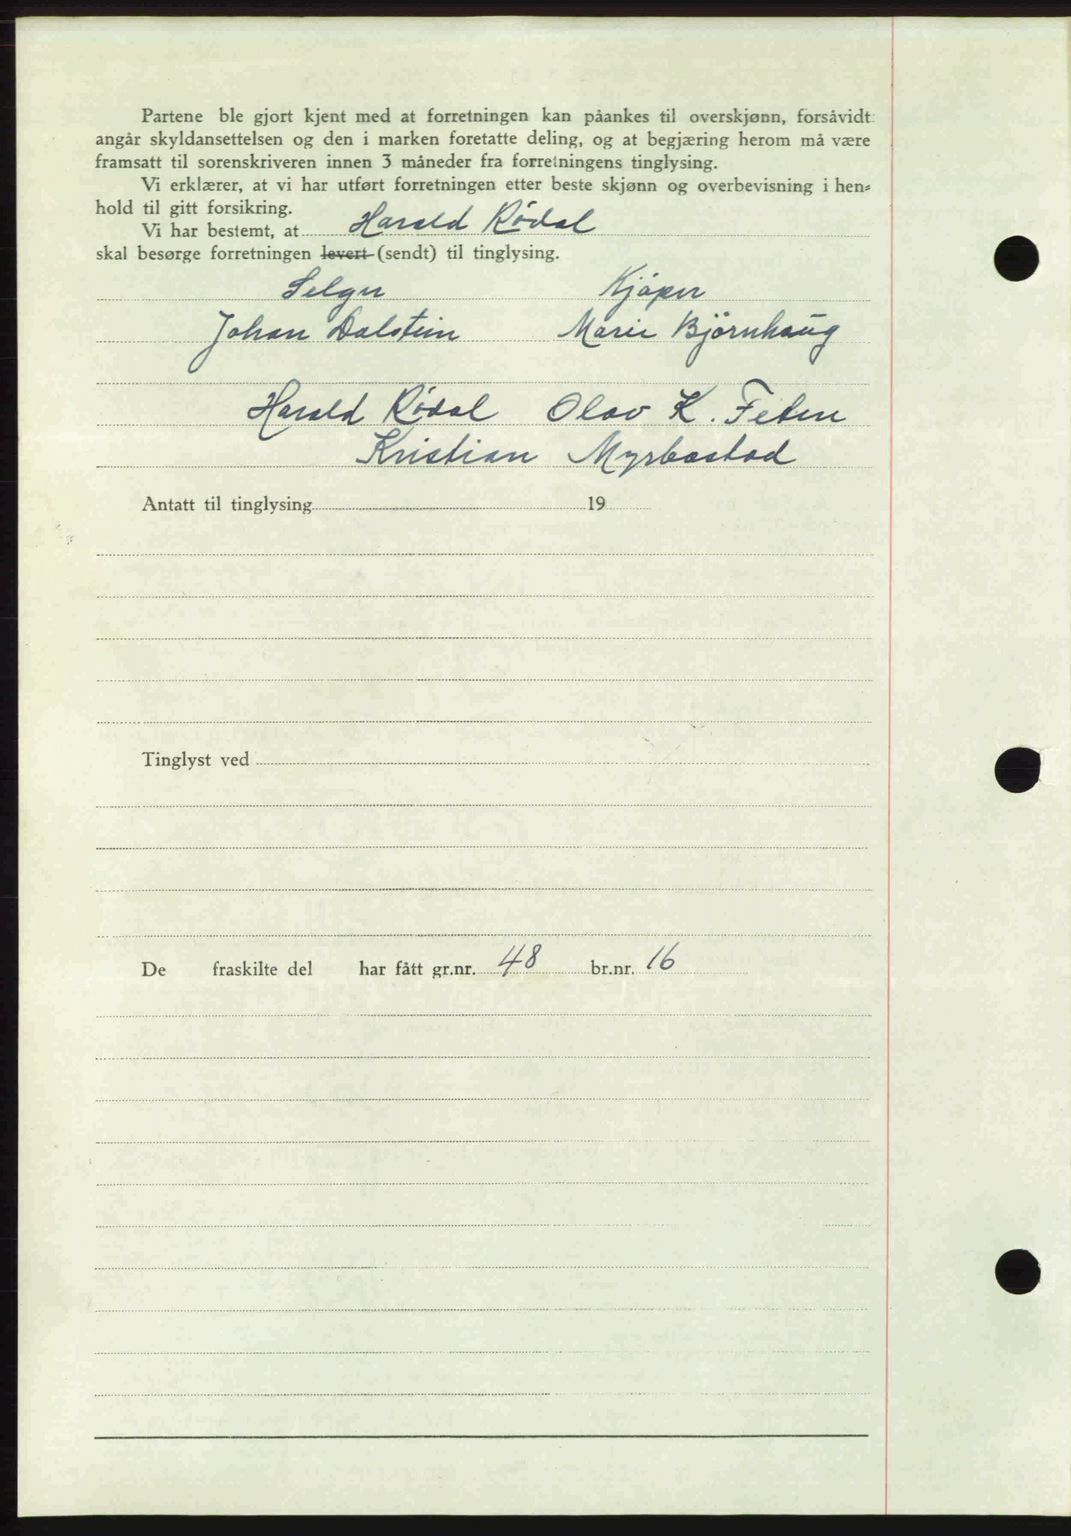 Partene ble gjort kjent med at forretningen kan påankes til overskjønn, forsåvidt
angår skyldansettelsen og den i marken foretatte deling, og at begjæring herom må være
framsatt til sorenskriveren innen 3 måneder fra forretningens tinglysing.
Vi erklærer, at vi har utført forretningen etter beste skjønn og overbevisning i hen-
hold til gitt forsikring.
Vi har bestemt, at Harald Rødal
skal besørge forretningen levert (sendt) til tinglysing.
Selger Kjöper
Johan Dalstein Marie Björnhaug
Harald Rødal Olav K. Feten
Kristian Myrbostad
Antatt til tinglysing 19
Tinglyst ved
De fraskilte del har fått gr.nr. 48 br.nr. 16